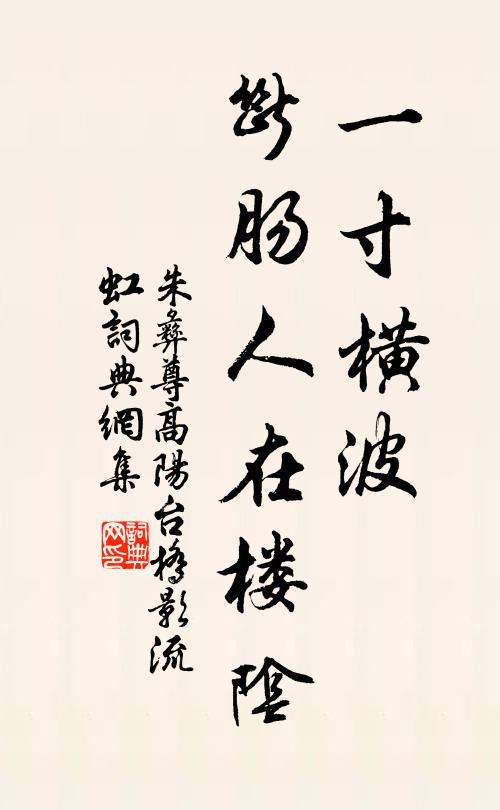 一寸横波
断肠人在楼陰
朱彝尊高陽台橋影流
虹詞典網集
詞典网印